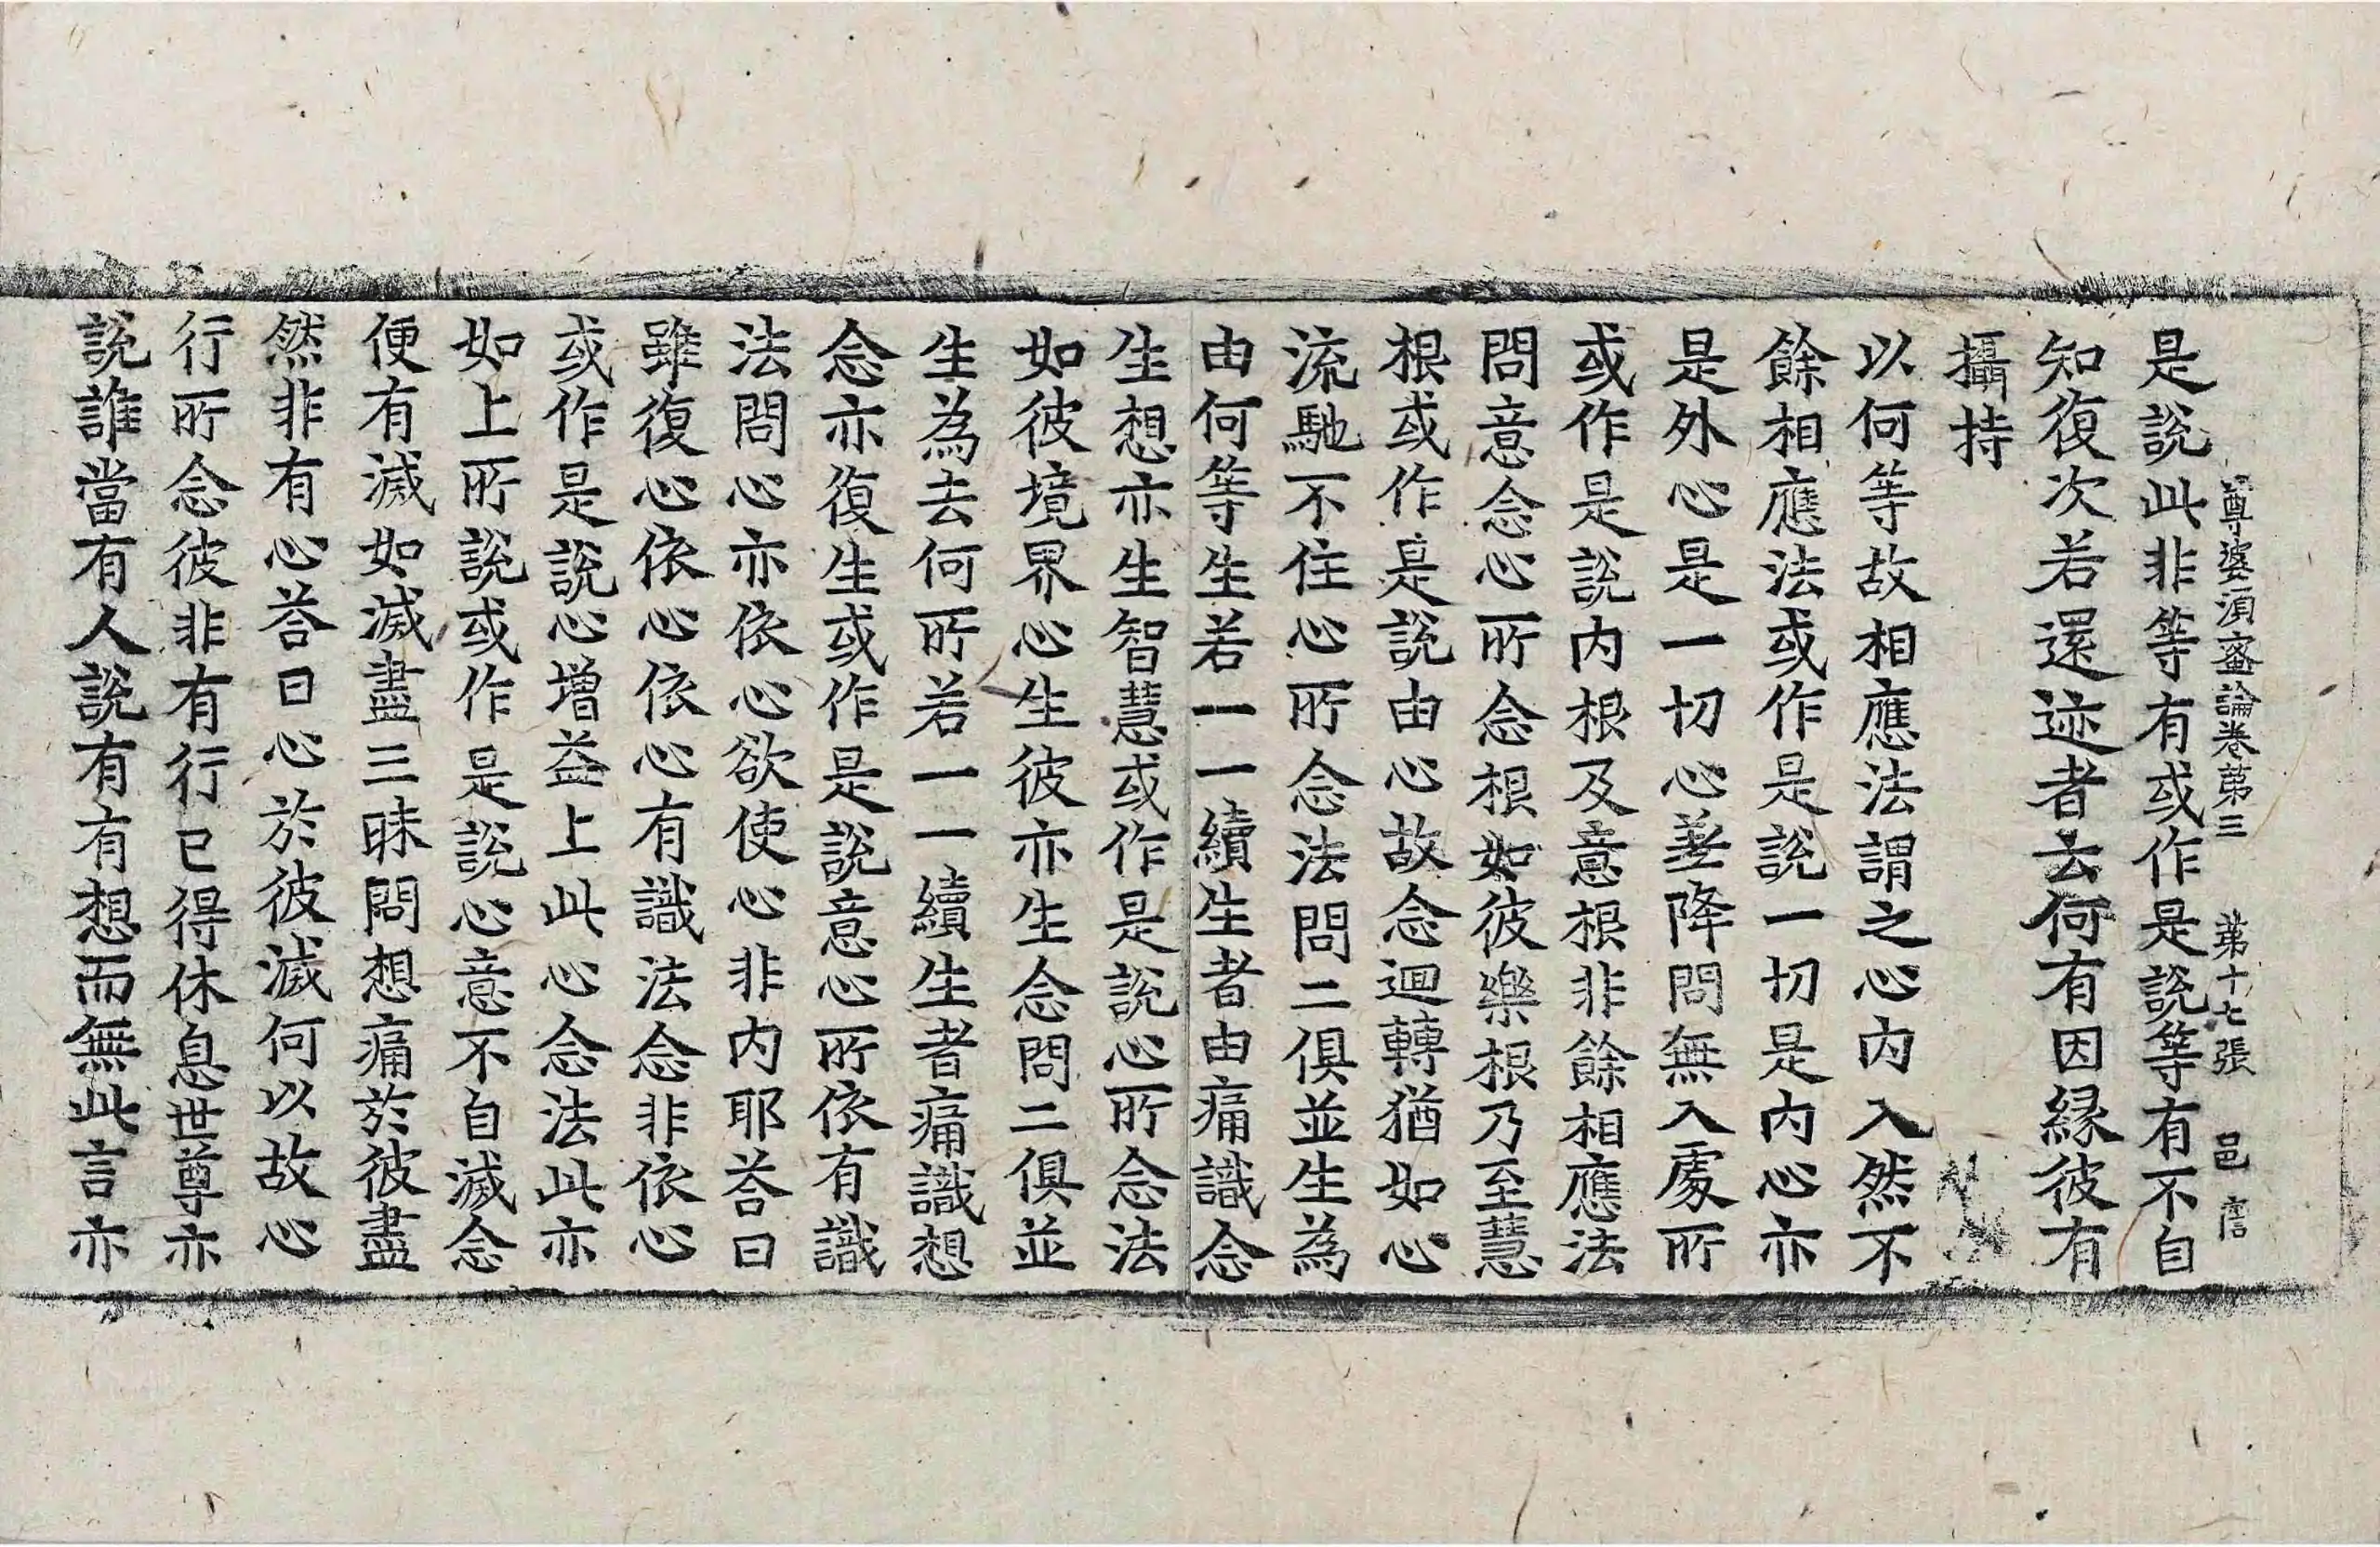 尊婆須蜜論卷第三 第十七張 邑
是說此非等有或作是說等有不自
知復次若還迹者去何有因縁彼有
攝持
以何等故相應法謂之心内入然不
餘相應法或作是說一切是内心亦
是外心是一切心差降問無入處所
或作是說内根及意根非餘相應法
問意念心所念根如彼樂根乃至慧
根或作是說由心故念迴轉猶如心
流馳不住心所念法問二俱並生為
由何等生若一一續生者由痛識念
生想亦生智慧或作是說心所念法
如彼境界心生彼亦生念問二俱並
生為去何所若一一續生者痛識想
念亦復生或作是說意心所依有識
法問心亦依心欲使心非内耶荅曰
雖復心依心依心有識法念非依心
或作是說心增益上此心念法此亦
如上所說或作是說心意不自滅念
便有滅如滅盡三昧問想痛於彼盡
然非有心荅曰心於彼滅何以故心
行所念彼非有行已得休息世尊亦
說誰當有人說有有想而無此言亦